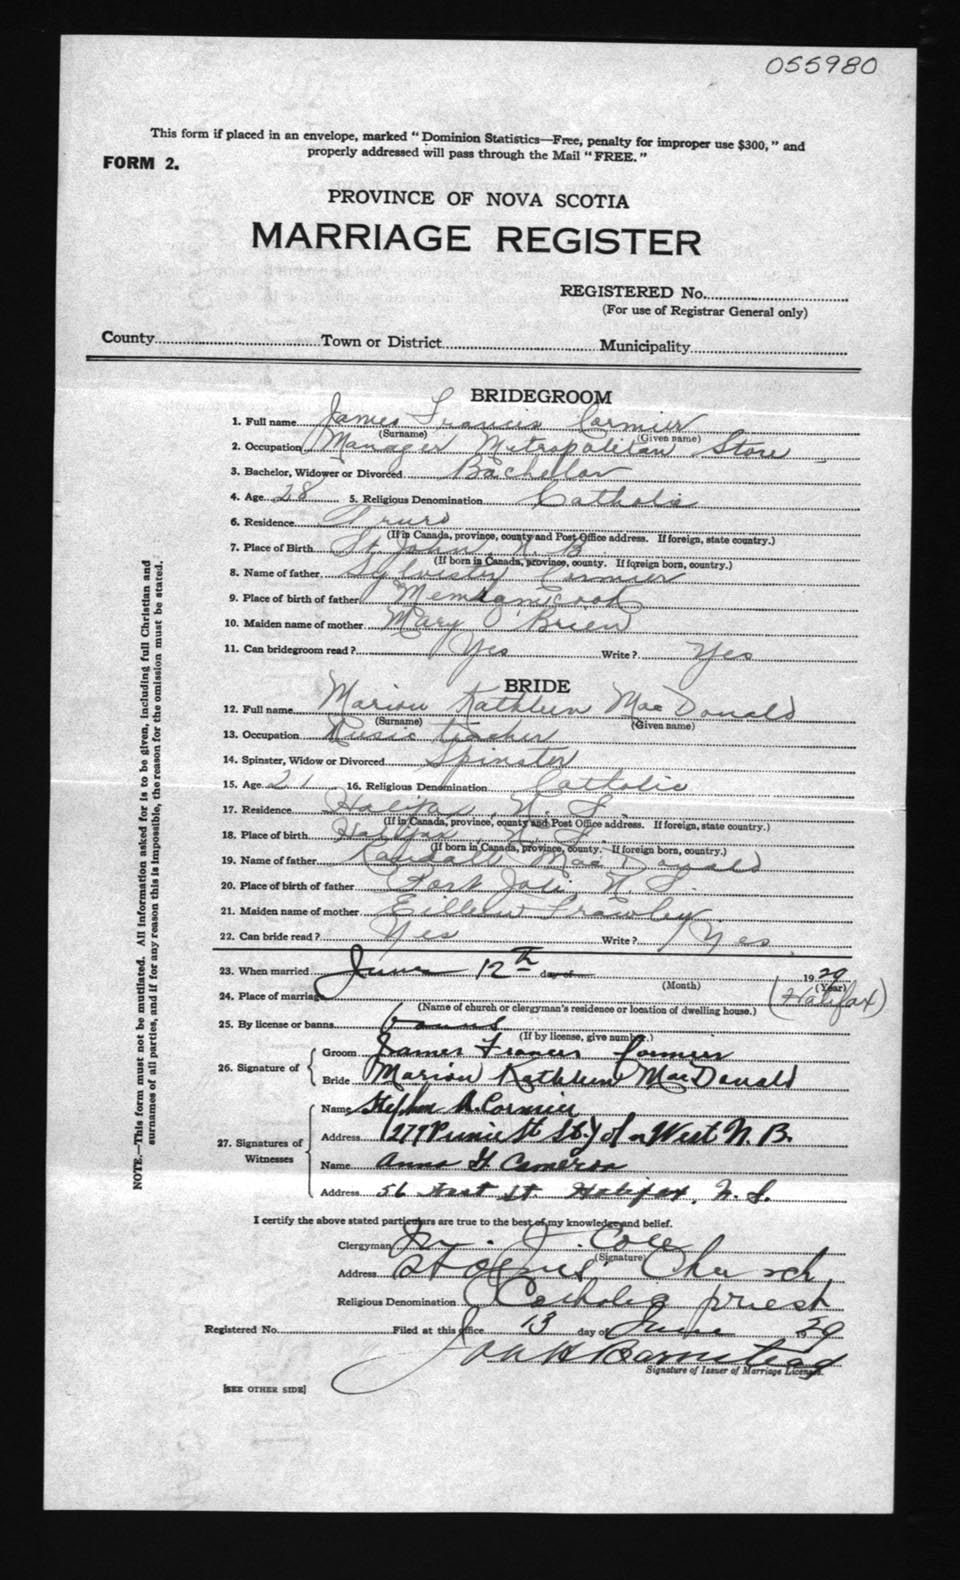 055980
This form if placed in an envelope, marked "Dominion Statistics—Free, penalty for improper use $300," and
properly addressed will pass through the Mail "FREE."
FORM 2.
PROVINCE OF NOVA SCOTIA
MARRIAGE REGISTER
REGISTERED No.
(For use of Registrar General only)
County Town or District Municipality
BRIDEGROOM
1. Full name James Francis Cormier
(Surname) (Given name)
2. Occupation Manager Metropolitan Store
3. Bachelor, Widower or Divorced Bachelor
4. Age 28 5. Religious Denomination Catholic
6. Residence Truro
(If in Canada, province, county and Post Office address. If foreign, state country.)
7. Place of Birth St John, N. B.
(If born in Canada, province, county. If foreign born, country.)
8. Name of father Sylvester Cormier
9. Place of birth of father Memramcook
10. Maiden name of mother Mary O'Brien
11. Can bridegroom read? Yes Write? Yes
BRIDE
12. Full name Marion Kathleen MacDonald
(Surname) (Given name)
13. Occupation Music teacher
14. Spinster, Widow or Divorced Spinster
15. Age 21 16. Religious Denomination Catholic
17. Residence Halifax, N. S.
(If in Canada, province, county and Post Office address. If foreign, state country.)
18. Place of birth Halifax, N. S.
(If born in Canada, province, county. If foreign born, country.)
19. Name of father Randall MacDonald
20. Place of birth of father Port Joli, N. S.
21. Maiden name of mother Eilleen Frawley
22. Can bride read? Yes Write? Yes
23. When married June 12th day of 1929
(Month) (Year)
24. Place of marriage (Halifax)
(Name of church or clergyman's residence or location of dwelling house.)
25. By license or banns banns
(If by license, give number.)
26. Signature of
Groom James Francis Cormier
Bride Marion Kathleen MacDonald
27. Signatures of
Witnesses
Name Stephen A. Cormier
Address 277 St West N. B.
Name Anna G. Cameron
Address 56 East St. Halifax, N. S.
I certify the above stated particulars are true to the best of my knowledge and belief.
Clergyman J. Cole
(Signature)
Address St Church
Religious Denomination Catholic priest
Registered No. Filed at this office 13 day of June 1929
Barnstead
Signature of Issuer of Marriage Licenses.
[SEE OTHER SIDE]
NOTE.—This form must not be mutilated. All information asked for is to be given, including full Christian and
surnames of all parties, and if for any reason this is impossible, the reason for the omission must be stated.